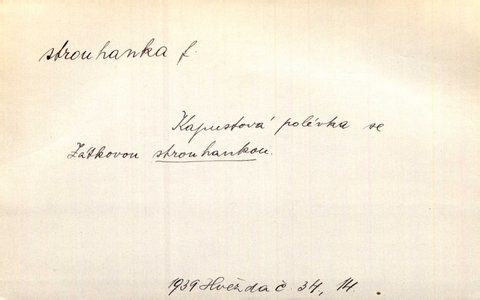 strouhanka f.
Kapustová polévka se
Zátkovou strouhankou.
1939 Hvězda č. 34, 14.